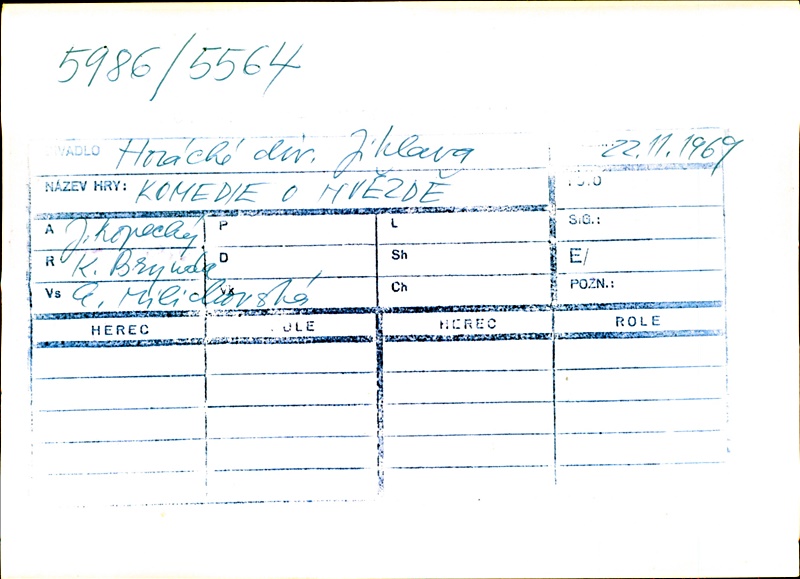 5986/5564
DIVADLO Horácké div. Jihlava 22.11.1969
NÁZEV HRY: KOMEDIE O HVĚZDĚ FOTO
A J. Kopecký P L SIG.:
R K. Brynda D Sh E/
Vs A. Milichovská Vk Ch POZN.:
HEREC ROLE HEREC ROLE